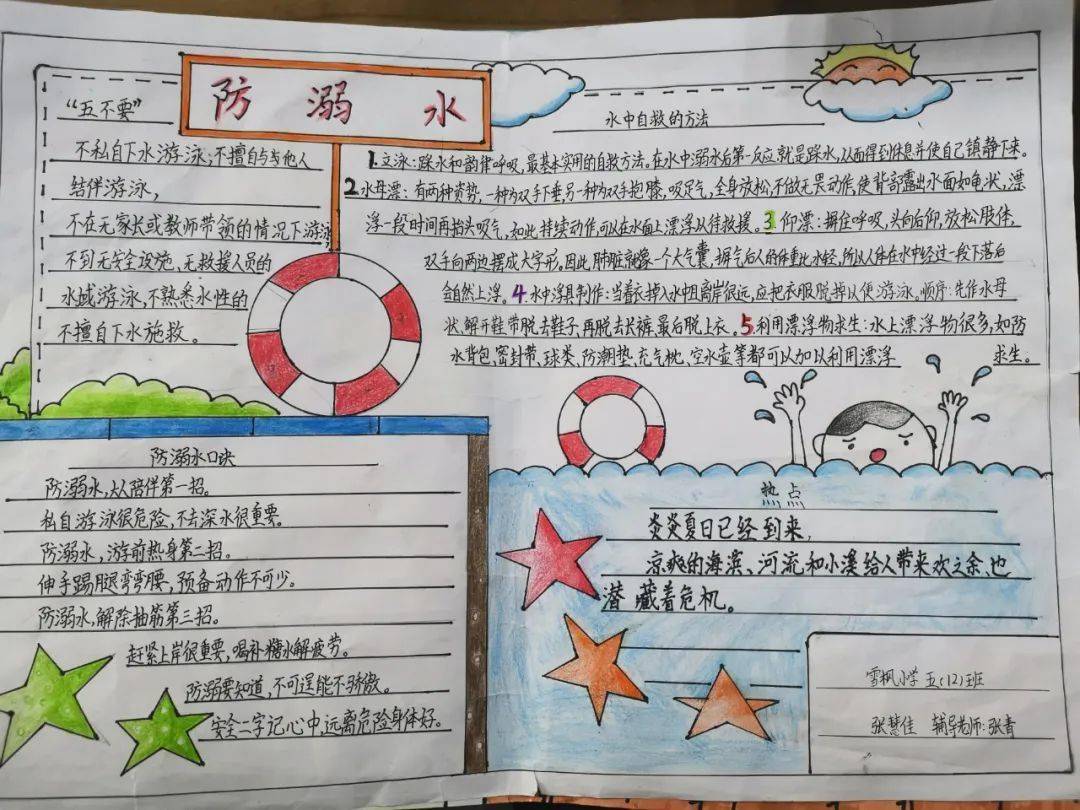 防溺水
“五不要”
不私自下水游泳；不擅自与他人
结伴游泳，
不在无家长或教师带领的情况下游泳
不到无安全设施、无救援人员的
水域游泳，不熟悉水性的
不擅自下水施救。
水中自救的方法
1.立泳：踩水和韵律呼吸，最基本实用的自救方法。在水中溺水后第一反应就是踩水，从而得到休息并使自己镇静下来。
2水母漂：有两种资势，一种为双手下垂，另一种为双手抱膝，吸足气，全身放松，不做无畏动作，使背部露出水面如龟状，漂
浮一段时间再抬头吸气，如此持续动作，可以在水面上漂浮以待救援。3仰漂：摒住呼吸，头向后仰，放松肢体，
双手向两边摆成大字形，因此肺脏就像一个大气囊，摒气后人的体重比水轻，所以人体在水中经过一段下落后
会自然上浮。4水中浮具制作：当着衣掉入水中且离岸很远，应把衣服脱掉以便游泳。顺序：先作水母
状，解开鞋带脱去鞋子，再脱去长裤，最后脱上衣。5利用漂浮物求生：水上漂浮物很多，如防
水背包、密封带、球类、防潮垫、充气枕、空水壶等都可以加以利用漂浮 求生。
防溺水口诀
防溺水，从陪伴第一招。
私自游泳很危险，不去深水很重要。
防溺水，游前热身第二招。
伸手踢腿弯弯腰，预备动作不可少。
防溺水，解除抽筋第三招。
赶紧上岸很重要，喝补糖水解疲劳。
防溺要知道，不可逞能不骄傲。
安全二字记心中，远离危险身体好。
热点
炎炎夏日已经到来，
凉爽的海滨、河流和小溪给人带来欢之余，也
潜藏着危机。
雪枫小学 五（12）班
张慧佳 辅导老师：张青